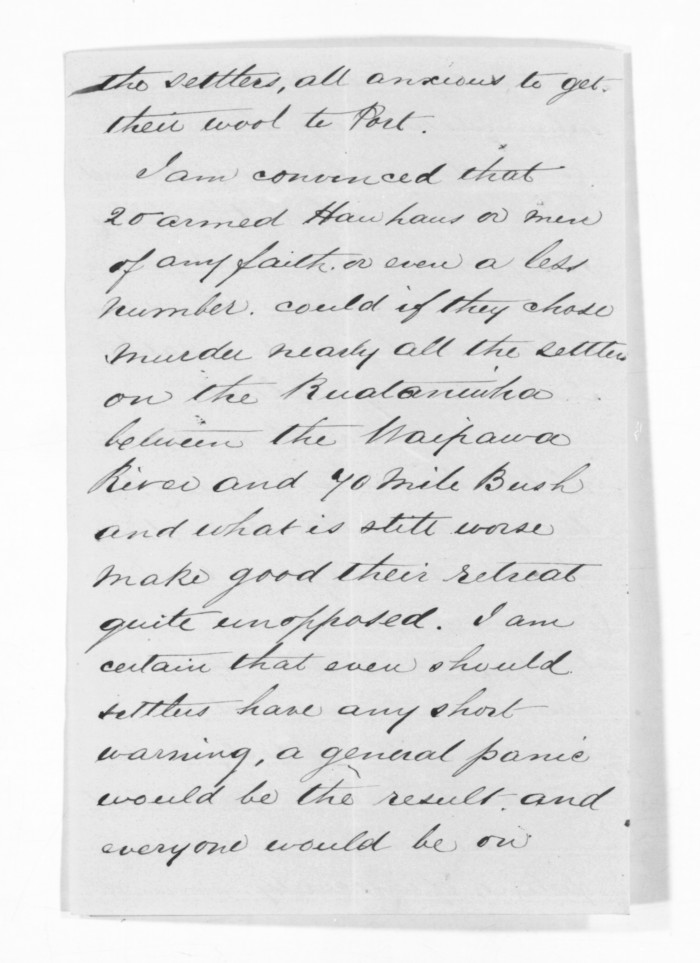 the settlers, all anxious to get
their wool to Port.
I am convinced that
20 armed Hau haus or men
of any faith or even a less
number. could if they chose
murder nearly all the settlers
on the Ruataniwha
between the Waipawa
River and 70 Mile Bush
and what is still worse
make good their retreat
quite unopposed. I am
certain that even should
settlers have any short
warning, a general panic
would be the result. and
everyone would be on